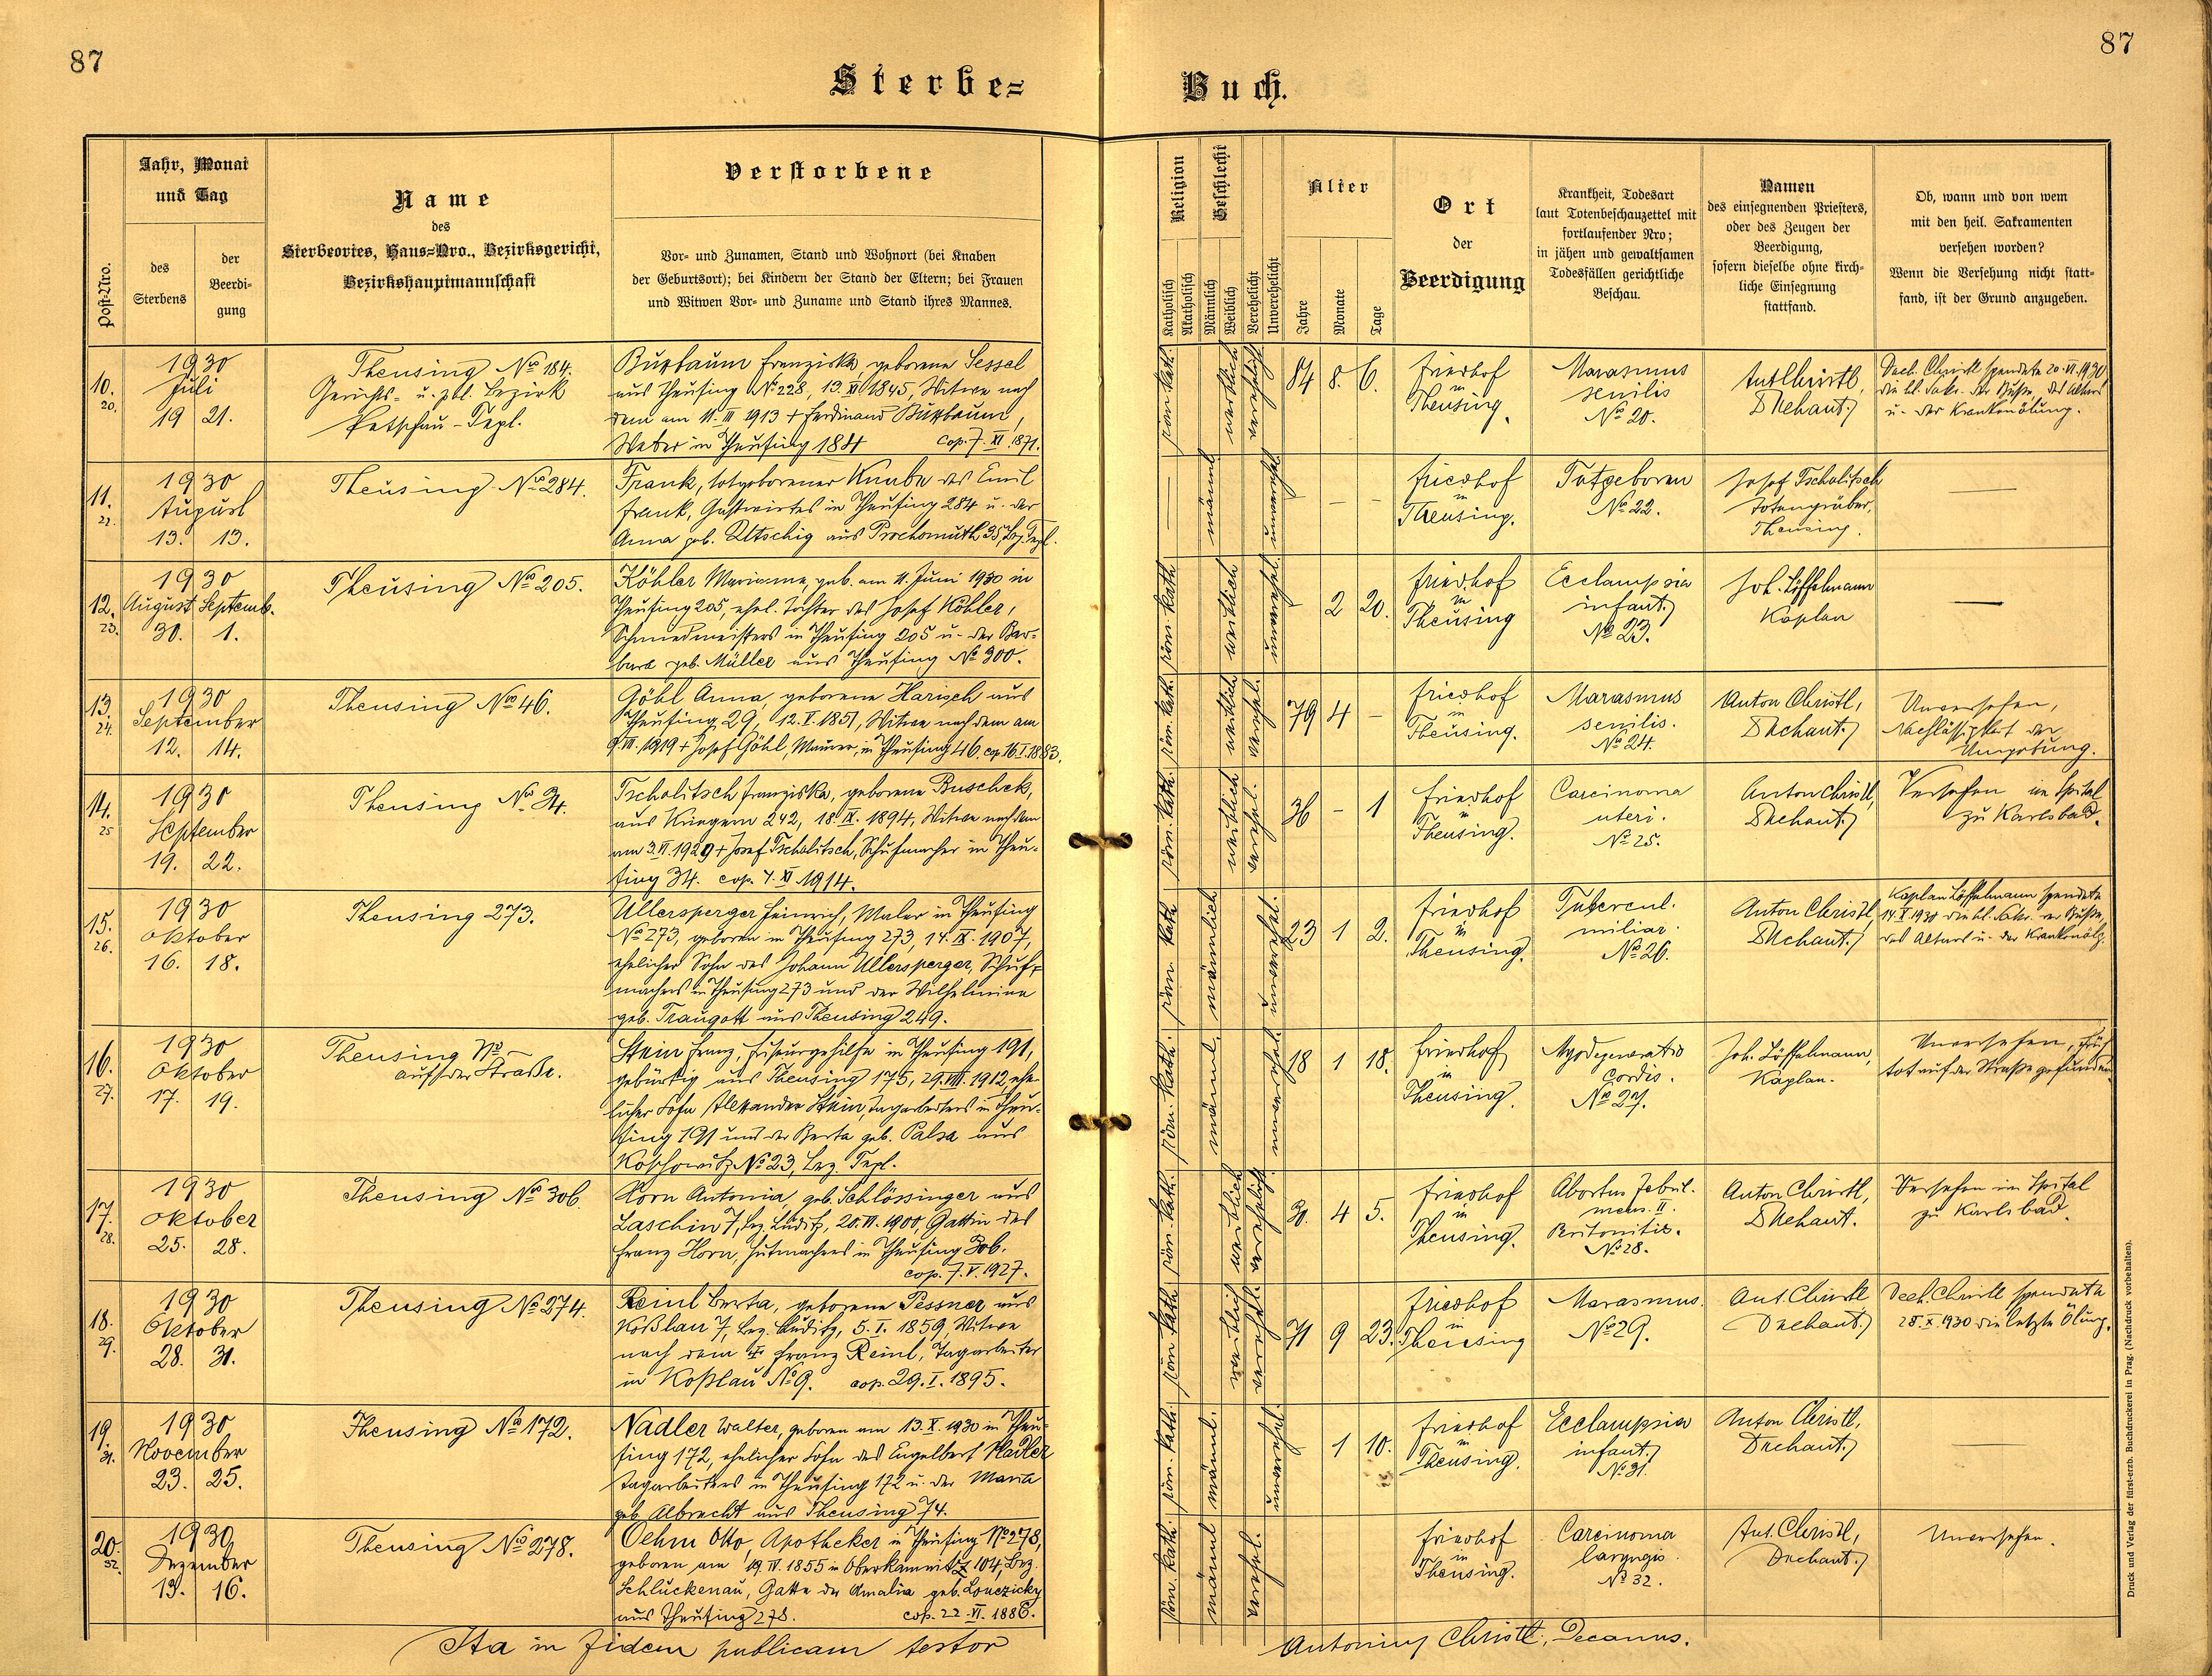 87
87
Sterbe=
Buch.
Post-Nro.
Jahr, Monat
und Tag
des
Sterbens
der
Beerdi-
gung
Name
des
Sterbeortes, Haus=Nro., Bezirksgericht,
Bezirkshauptmannschaft
Verstorbene
Vor- und Zunamen, Stand und Wohnort (bei Knaben
der Geburtsort); bei Kindern der Stand der Eltern; bei Frauen
und Witwen Vor- und Zuname und Stand ihres Mannes.
Religion
Katholisch
Akatholisch
Geschlecht
Männlich
Weiblich
Verehelicht
Unverehelicht
Alter
Jahre
Monate
Tage
Ort
der
Beerdigung
Krankheit, Todesart
laut Totenbeschauzettel mit
fortlaufender Nro;
in jähen und gewaltsamen
Todesfällen gerichtliche
Beschau.
Namen
des einsegnenden Priesters,
oder des Zeugen der
Beerdigung,
sofern dieselbe ohne kirch-
liche Einsegnung
stattfand.
Ob, wann und von wem
mit den heil. Sakramenten
versehen worden?
Wenn die Versehung nicht statt-
fand, ist der Grund anzugeben.
10.
20.
1930
Juli
19 21.
Theusing No 184.
Gerichts- u. pol. Bezirk
Petschau-Tepl.
Buxbaum Franziska, geborene Sessel
aus Theusing No 228, 13. XI 1845, Witwe nach
dem am 11. III 1913 + Ferdinand Buxbaum,
Weber in Theusing 184 cop. 7. XI. 1871.
röm. kath.
weiblich
verehelicht
84 8. 6.
Friedhof
in
Theusing.
Marasmus
senilis
No 20.
Ant Christl,
Dechant.
Dech. Christl spendete 20. VI. 1930
die hl. Sakr. der Buße, des Altars
u. der Krankenölung.
11.
22.
1930
August
13. 13.
Theusing No 284.
Frank, totgeborener Knabe des Emil
Frank, Gastwirtes in Theusing 284 u. der
Anna geb. Utschig aus Prochomuth 35, Bez. Tepl.
männl.
unverehel.
Friedhof
in
Theusing.
Totgeboren
No 22.
Josef Tscholitsch
Totengräber,
Theusing.
12.
23.
1930
August Septemb.
30. 1.
Theusing No 205.
Köhler Marianne, geb. am 11. Juni 1930 in
Theusing 205, ehel. Tochter des Josef Köhler,
Schmiedmeisters in Theusing 205 u. der Bar-
bara geb. Müller aus Theusing No 300.
röm. kath.
weiblich
unverehel.
- 2 20.
Friedhof
in
Theusing
Ecclampsia
infant.
No 23.
Joh. Löffelmann
Kaplan
13.
24.
1930
September
12. 14.
Theusing No 46.
Göhl Anna, geborene Harisch aus
Theusing 29, 12. V. 1851, Witwe nach dem am
9. III. 1919 + Josef Göhl, Maurer, in Theusing 46. cop. 16. I. 1883.
röm. kath.
weiblich
verehel.
79 4 -
Friedhof
in
Theusing.
Marasmus
senilis.
No 24.
Anton Christl,
Dechant.
Unversehen,
Nachlässigkeit der
Umgebung.
14.
25
1930
September
19. 22.
Theusing No 34.
Tscholitsch Franziska, geborene Buschek,
aus Kriegern 242, 18. IX. 1894, Witwe nach dem
am 3. VI. 1929 + Josef Tscholitsch, Schuhmacher in Theu-
sing 34. cop. 7. XI 1914.
röm. kath.
weiblich
verehel.
36 - 1
Friedhof
in
Theusing.
Carcinoma
uteri.
No 25.
Anton Christl,
Dechant.
Versehen im Spital
zu Karlsbad.
15.
26.
1930
Oktober
16. 18.
Theusing 273.
Ullersperger Heinrich, Maler in Theusing
No 273, geboren in Theusing 273, 14. IX. 1907,
ehelicher Sohn des Johann Ullersperger, Schuh-
machers in Theusing 273 und der Wilhelmine
geb. Traugott aus Theusing 249.
röm. kath.
männlich
unverehel.
23 1 2.
Friedhof
in
Theusing.
Tubercul.
miliar.
No 26.
Anton Christl,
Dechant.
Kaplan Löffelmann spendete
14. X 1930 die hl. Sakr. der Buße,
des Altars u. der Krankenölg.
16.
27.
1930
Oktober
17. 19.
Theusing No
auf der Straße.
Stein Franz, Friseurgehilfe in Theusing 191,
gebürtig aus Theusing 175, 29. VIII. 1912, ehe-
licher Sohn Alexander Stein, Tagarbeiters in Theu-
sing 191 und der Berta geb. Palsa aus
Koschowitz No 23, Bez. Tepl.
röm. kath.
männl.
unverehel.
18 1 18.
Friedhof
in
Theusing.
Myodegeneratio
cordis.
No 27.
Joh. Löffelmann,
Kaplan.
Unversehen, früh
tot auf der Straße gefunden
17.
28.
1930
Oktober
25. 28.
Theusing No 306.
Horn Antonia, geb. Schlössinger aus
Laschin 7, Bez. Luditz, 20. VI. 1900, Gattin des
Franz Horn, Hutmachers in Theusing 306.
cop. 7. V. 1927.
röm. kath.
weiblich
verehelicht
30. 4 5.
Friedhof
in
Theusing.
Abortus febril.
mens. II.
Peritonitis.
No 28.
Anton Christl,
Dechant.
Versehen im Spital
zu Karlsbad.
18.
29.
1930
Oktober
28. 31.
Theusing No 274.
Reinl Berta, geborene Pessner aus
Koßlau 7, Bez. Luditz, 5. I. 1859, Witwe
nach dem + Franz Reinl, Tagarbeiter
in Koßlau No 9. cop. 29. I. 1895.
röm. kath.
weiblich
verehel.
71 9 23.
Friedhof
in
Theusing
Marasmus.
No 29.
Ant. Christl
Dechant.
Dech. Christl spendete
28. X. 1930 die letzte Ölung.
19.
31.
1930
November
23. 25.
Theusing No 172.
Nadler Walter, geboren am 13. X. 1930 in Theu-
sing 172, ehelicher Sohn des Engelbert Nadler
Tagarbeiters in Theusing 172 u. der Maria
geb. Albrecht aus Theusing 74.
röm. kath.
männl.
unverehel.
- 1 10.
Friedhof
in
Theusing.
Ecclampsia
infant.
No 31.
Anton Christl,
Dechant.
20.
32.
1930
Dezember
13. 16.
Theusing No 278.
Oehm Otto, Apotheker in Theusing No 278,
geboren am 19. IV. 1855 in Oberkamnitz 104, Bez.
Schluckenau, Gatte der Amalia geb. Louczicky
aus Theusing 278. cop. 22. VI. 1886.
röm. kath.
männl
verehel.
Friedhof
in
Theusing.
Carcinoma
laryngis.
No 32.
Ant. Christl,
Dechant.
Unversehen.
Ita in fidem publicam testor
Antonius Christl, Decanus.
Druck und Verlag der fürst-erzb. Buchdruckerei in Prag. (Nachdruck vorbehalten).